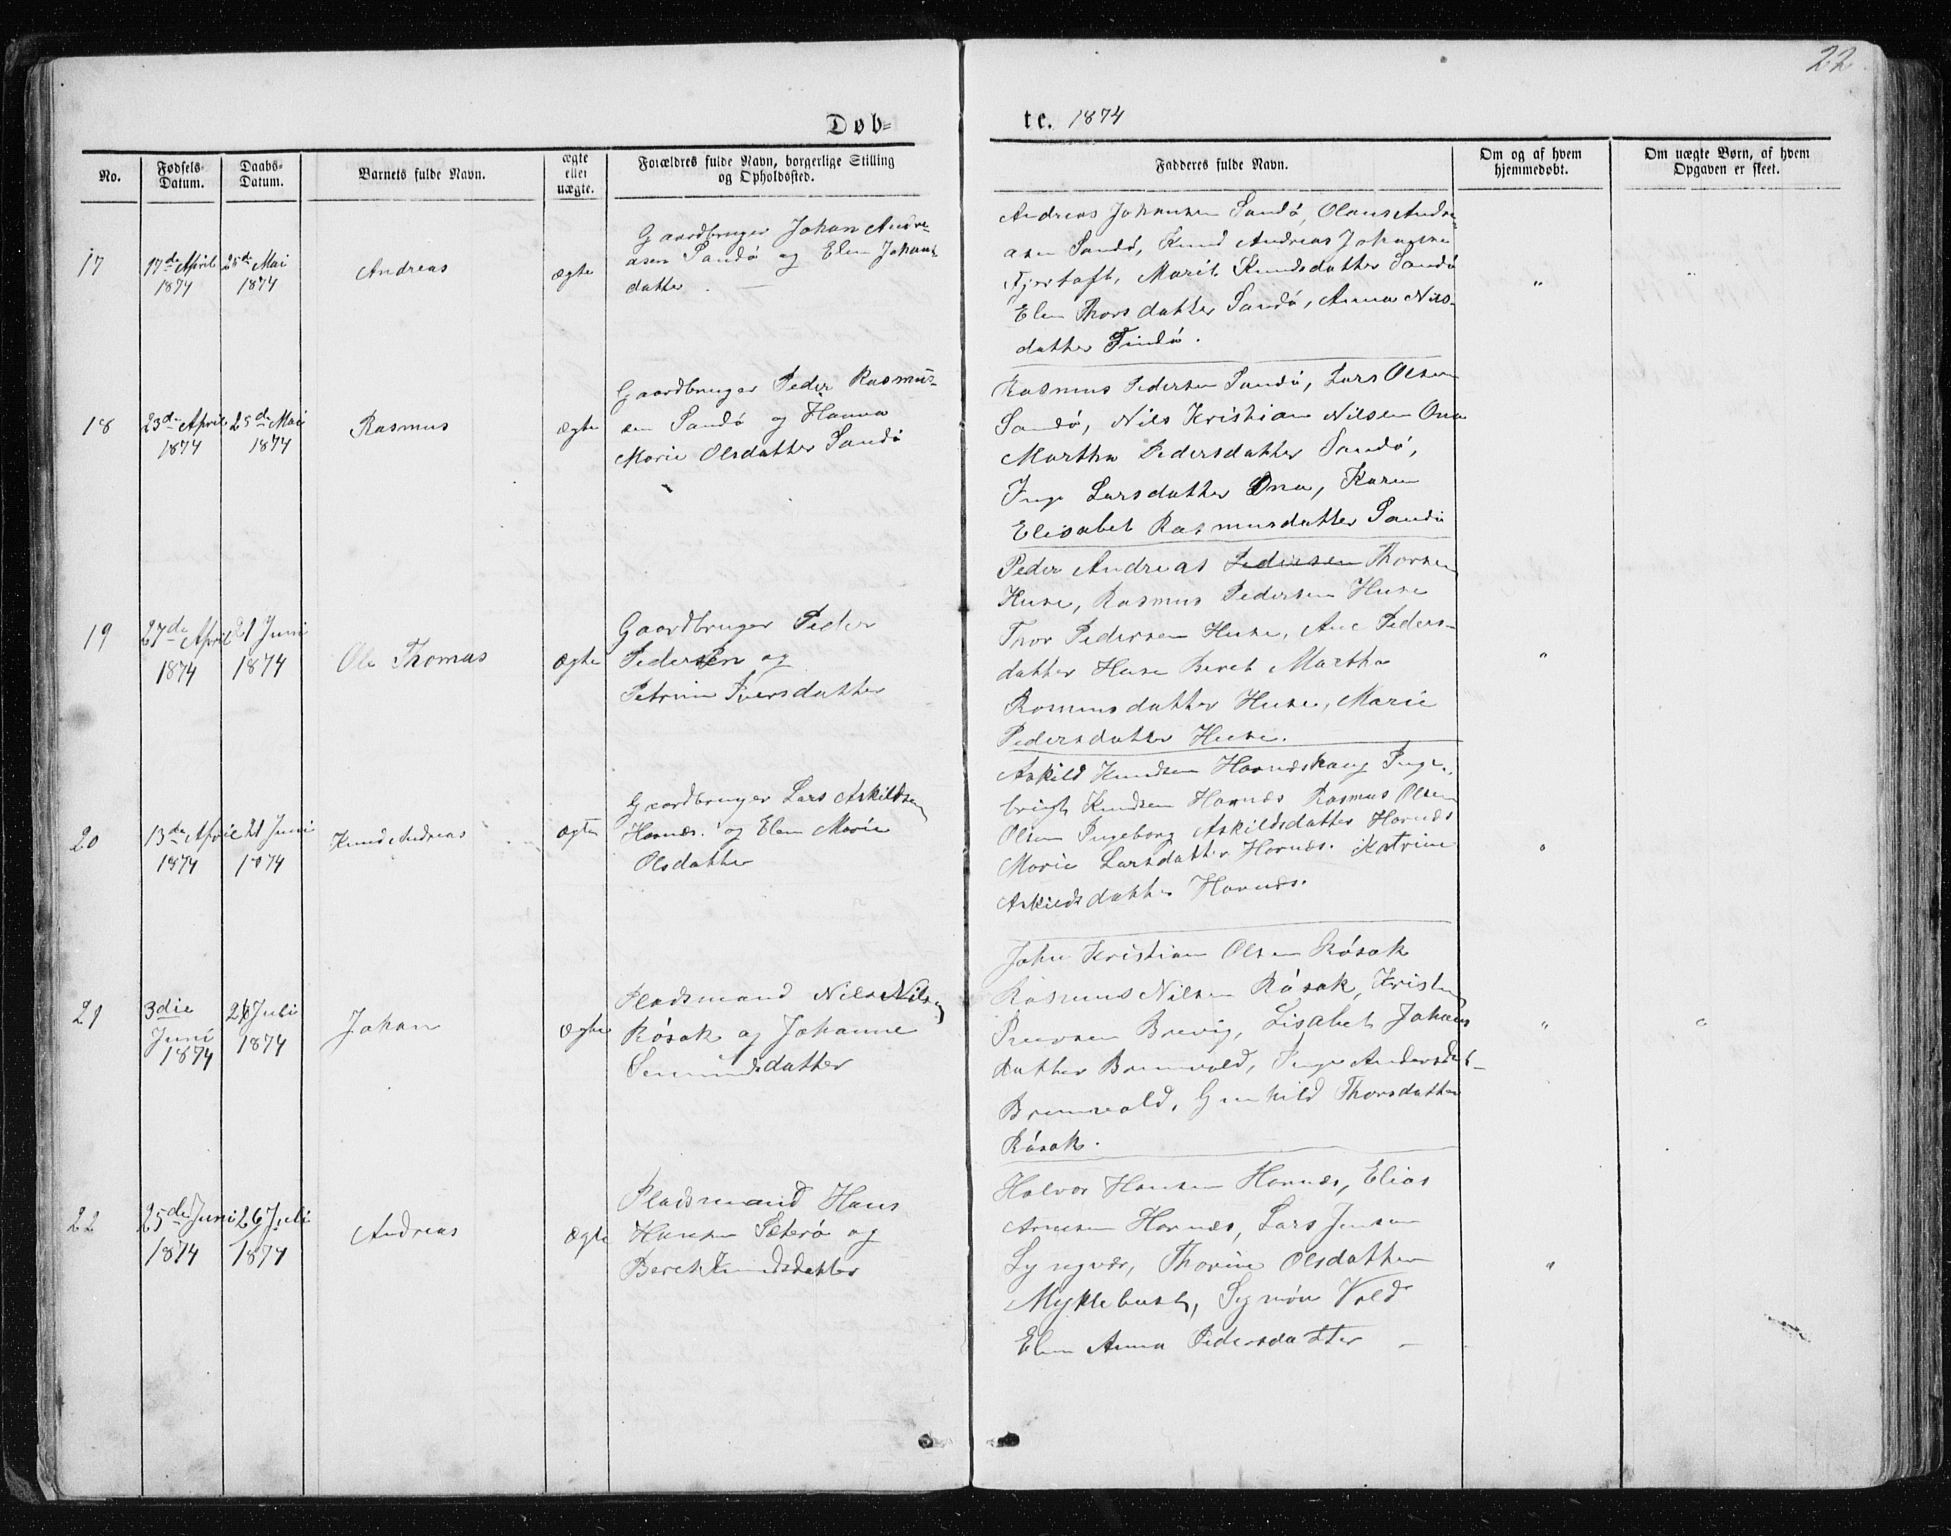 22
Døb-
te. 1874
No.
Fødsels-
Datum.
Daabs-
Datum.
Barnets fulde Navn.
ægte
eller
uægte.
Forældres fulde Navn, borgerlige Stilling
og Opholdssted.
Fadderes fulde Navn.
Om og af hvem
hjemmedøbt.
Om uægte Børn, af hvem
Opgaven er skeet.
17
17de April
1874
25de Mai
1874
Andreas
ægte
Gaardbruger Johan Andre-
asen Sandø og Elen Johans
datter
Andreas Johansen Sandø, Olaus Andre-
asen Sandø, Knud Andreas Johansen
Fjørtoft, Marit Knudsdatter Sandø
Elen Thorsdatter Sandø, Anna Nils-
datter Findø.
"
18
23de April
1874
25de Mai
1874
Rasmus
ægte
Gaardbruger Peder Rasmus-
sen Sandø og Hanna
Marie Olsdatter Sandø
Rasmus Pedersen Sandø, Lars Olsen
Sandø, Nils Kristian Nilsen Ona
Martha Pedersdatter Sandø,
Inge Larsdatter Ona, Karen
Elisabet Rasmusdatter Sandø
19
27de April
1874
21 Juni
1874
Ole Thomas
ægte
Gaardbruger Peder
Pedersen og
Petrine Iversdatter
Peder Andreas Pedersen Thorsen
Huse, Rasmus Pedersen Huse
Thor Pedersen Huse, Ane Peders-
datter Huse Beret Martha
Rasmusdatter Huse, Marie
Pedersdatter Huse.
"
20
13de April
1874
21 Juni
1874
Knud Andreas
ægte
Gaardbruger Lars Askildsen
Harnæs. og Elen Marie
Olsdatter
Askild Knudsen Harnæshaug Inge-
brigt Knudsen Harnæs Rasmus Olsen
Olsen Ingeborg Askildsdatter Harnæs
Marie Larsdatter Harnæs. Katrine
Askildsdatter Harnæs.
"
21
3die
Juni
1874
26 Juli
1874
Johan
ægte
Pladsmand Nils Nilsen
Røsok og Johanne
datter
John Kristian Olsen Røsok
Rasmus Nilsen Røsok, Kristen
Brevig, Lisabet Johans
datter Bremvold, Inge Andersdat-
Bremvold, Gunhild Thorsdatter
Røsok.
"
"
22
25de Juni
1874
26 Juli
1874
Andreas
ægte
Pladsmand Hans
Hansen Sæterø og
Beret Knudsdatter
Halvor Hansen Harnæs, Elias
Arnesen Harnæs, Lars Jensen
Lyngvær, Thorine Olsdatter
Myklebust, Synnøv Vold
Elen Anna Pedersdatter —
"